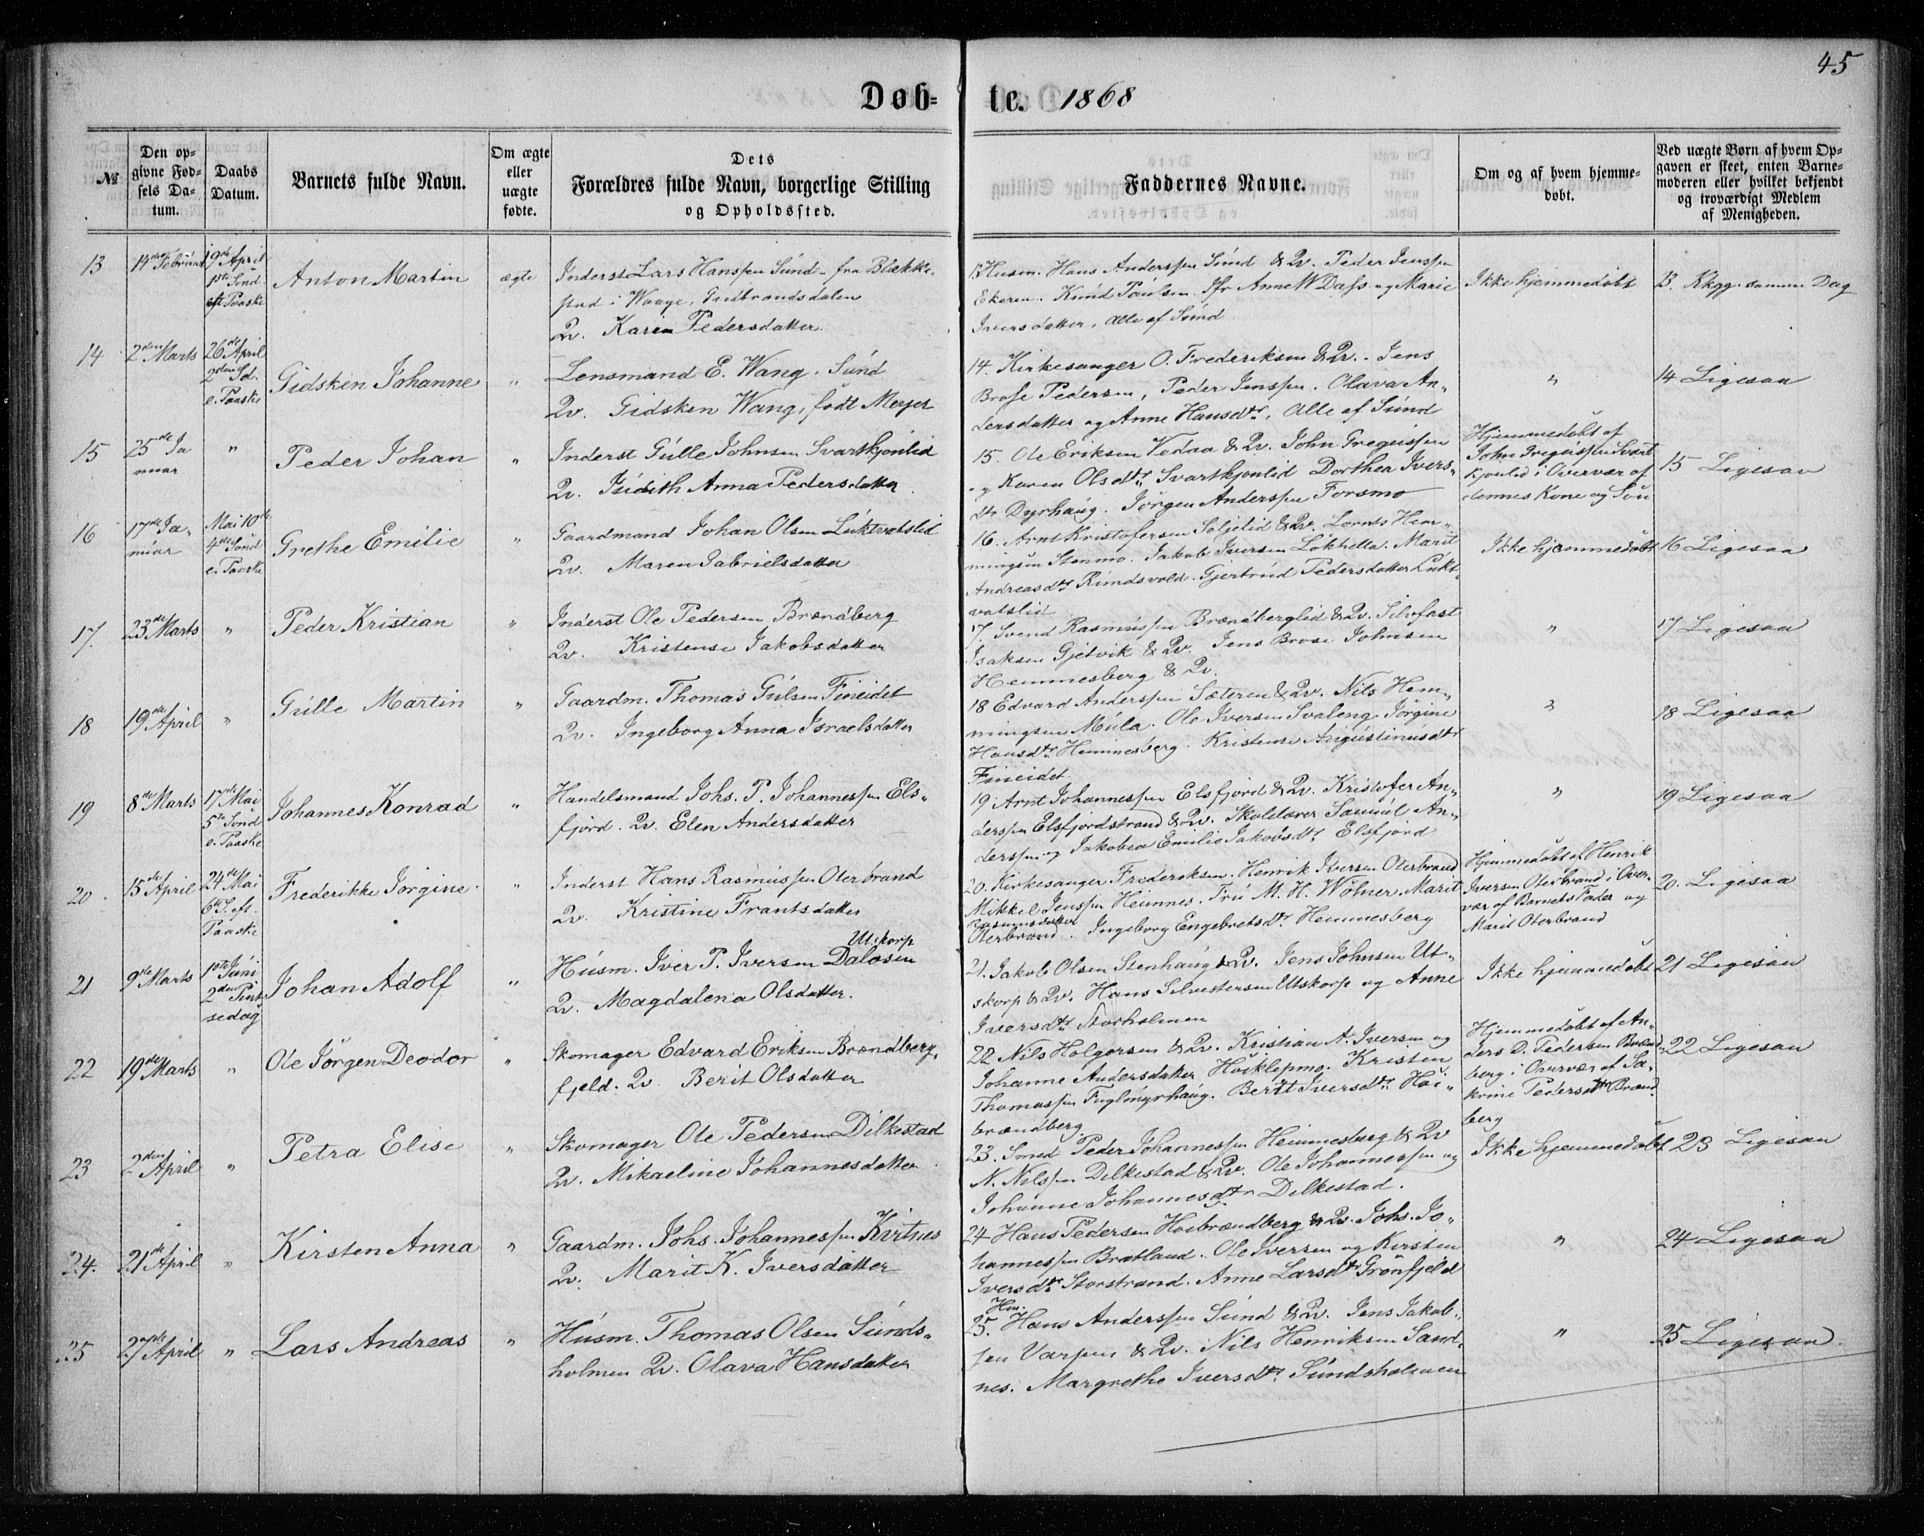 45
Døb= te. 1868
№
Den op-
givne Fød-
sels Da-
tum.
Daabs
Datum.
Barnets fulde Navn.
Om ægte
eller
uægte
fødte.
Dets
Forældres fulde Navn, borgerlige Stilling
og Opholdssted.
Faddernes Navne.
Om og af hvem hjemme-
døbt.
Ved uægte Børn af hvem Op-
gaven er skeet, enten Barne-
moderen eller hvilket bekjendt
og troværdigt Medlem
af Menigheden.
13
14de Februar
19de April
1ste Sönd
eft Paaske
Anton Martin
ægte
Inderst Lars Hanssen Sund fra Blekke-
stad i Waage, Gudbrandsdalen
Qv. Karen Pedersdatter
13 Husm. Hans Anderssen Sund & Qv. Peder Jenssen
Ekeren. Knud Paulsen. Jfr Anne W Dass og Marie
Iversdatter, alle af Sund
Ikke hjemmedøbt
13. Kkgg. samme Dag
14
2den Marts
26de April
2den Sd.
e. Paaske
Gidsken Johanne
"
Lensmand E. Wang, Sund
Qv. Gidsken Wang, født Meyer
14. Kirkesanger O. Frederiksen & Qv. Jens
Brose Pedersen, Peder Jenssen. Olava An-
dersdatter og Anne Hansdtr, Alle af Sund
"
14 Ligesaa
15
25de Ja
nuar
"
Peder Johan
"
Inderst Gulle Johnsen Svartkjønlid
Qv. Judith Anna Pedersdatter
15. Ole Eriksen Vedaa & Qv. John Gregussen
og Karen Olsdtr Svartkjønlid Dorthea Ivers-
dtr Dyrhaug. Jørgen Anderssen Forsmo
Hjemmedøbt af
John Gregussen Svart
kjønlid i Overvær af
dennes Kone og Søn
15 Ligesaa
16
17de Ja-
nuar
Mai 10de
4de Sönd
e. Paaske
Grethe Emilie
"
Gaardmand Johan Olsen Luktvatslid
Qv. Maren Gabrielsdatter
16. Arnt Kristofersen Soljelid & Qv. Lornts Hem-
mingsen Stenmo. Jakob Iversen Lökhella. Marit
Andreasdtr Rundsvold. Gjertrud Pedersdatter Lukt-
vatslid
Ikke hjemmedøbt
16 Ligesaa
17.
23de Marts
"
Peder Kristian
"
Inderst Ole Pedersen Brændberg
Qv. Kristense Jakobsdatter
17 Svend Rasmussen Brændberglid & Qv. Silvfast
Isaksen Gjetvik & Qv. Jens Brose Johnsen
Hemmesberg & Qv.
"
17 Ligesaa
18
19de April
"
Gulle Martin
"
Gaardm. Thomas Gulsen Fineidet
Qv. Ingeborg Anna Israelsdatter
18 Edvard Anderssen Sæteren & Qv. Nils Hem-
mingsen Mula. Ole Iversen Svaleng. Jørgine
Hansdtr Hemnesberg. Kristense Augustinusdtr
Fineidet
"
18 Ligesaa
19
8de Marts
17de Mai
5te Sönd
e. Paaske
Johannes Konrad
"
Handelsmand Johs. P. Johannessen Els-
fjord. Qv. Elen Andersdatter
19 Arnt Johannessen Elsfjord & Qv. Kristofer An-
derssen Elsfjordstrand & Qv. Skolelærer Samuel An-
derssen og Jakobea Emilie Jakobsdtr Elsfjord
"
19 Ligesaa
20
15de April
24de Mai
6te S. eft.
Paaske
Frederikke Jørgine
"
Inderst Hans Rasmussen Oterbrand
Qv. Kristine Frantsdatter
20. Kirkesanger Frederiksen. Henrik Iversen Oterbrand
Mikkel Jenssen Hemnes. Fru M. H. Wölner. Marit
Rasmusdatter
Oterbrand. Ingeborg Engebretsdtr Hemmesberg
Hjemmedøbt af Henrik
Iversen Oterbrand i Over-
vær af Barnets Fader og
Marit Oterbrand
20. Ligesaa
21
9de Marts
1ste Juni
2den Pint
sedag
Johan Adolf
"
Utskorp
Husm. Iver P. Iversen Dalosen
Qv. Magdalena Olsdatter.
21. Jakob Olsen Stenhaug & Qv. Jens Johnsen Ut-
skorp & Qv. Hans Silvestersen Utskorp og Anne
Iversdtr Storholmen
Ikke hjemmedøbt
21 Ligesaa
22
19de Marts
"
Ole Jørgen Deodor
"
Skomager Edvard Eriksen Brændberg-
fjeld. Qv. Berit Olsdatter
22. Nils Holgersen & Qv. Kristian A. Iversen og
Johanne Andersdatter Høiklepmo. Kristen
Thomassen Fuglmyrhaug. Berit Iversdtr Høi-
brændberg
Hjemmedøbt af An-
ders D. Pedersen Brænd-
berg i Overvær af Sa-
krine Pedersdtr Brænd-
berg
22 Ligesaa
23
2den April
"
Petra Elise
"
Skomager Ole Pedersen Dilkestad
Qv. Mikaeline Johannesdatter
23. Smed Peder Johannessen Hemmesberg & Qv
N. Nilssen Dilkestad & Qv. Ole Johannessen og
Johanne Johannesdtr Dilkestad.
Ikke hjemmedøbt
23 Ligesaa
24.
21de April
"
Kirsten Anna
"
Gaardm. Johs. Johannessen Kvitnes
Qv. Marit K. Iversdatter
24 Hans Pedersen Høibrændberg & Qv. Johs. Jo-
hannessen Bratland. Ole Iversen og Kirsten
Iversdtr Storstrand. Anne Larsdtr Grönfjeld
"
24 Ligesaa
25
27de April
"
Lars Andreas
"
Husm. Thomas Olsen Sunds-
holmen Qv. Olava Hansdatter
Hus.
25. Hans Anderssen Sund & Qv. Jens Jakob-
sen Varpen & Qv. Nils Henriksen Sand-
nes. Margrethe Iversdtr Sundsholmen
"
25 Ligesaa.